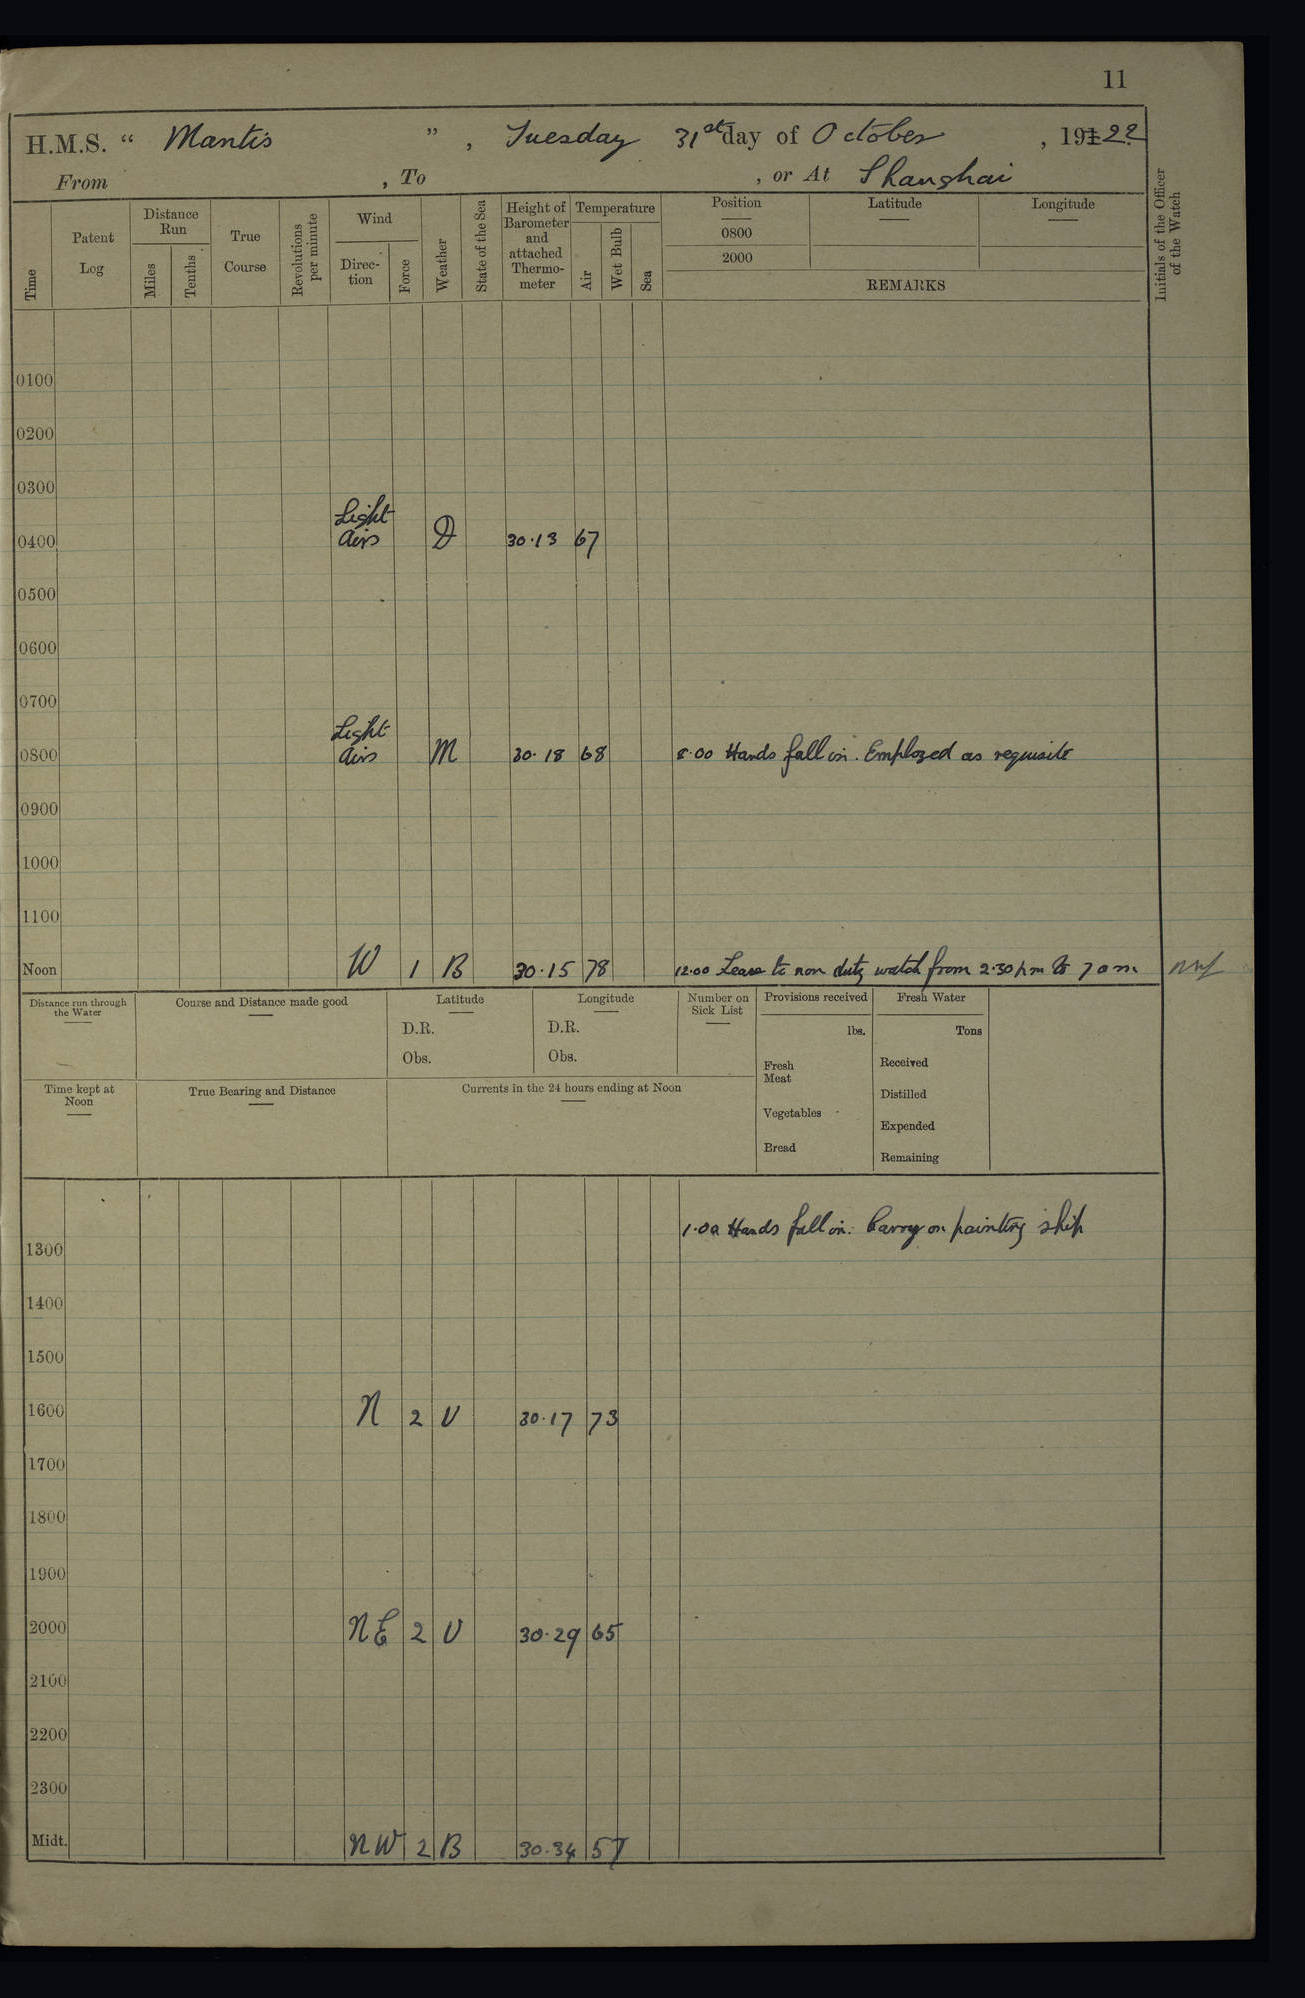 11
H.M.S. “ Mantis ”, Tuesday 31st day of October, 1922
From , To , or At Shanghai
Time Patent Log Distance Run Miles Tenths True Course Revolutions per minute Wind Direc-tion Force Weather State of the Sea Height of Barometer and attached Thermo-meter Temperature Air Wet Bulb Sea Position 0800 2000 Latitude Longitude REMARKS Initials of the Officer of the Watch
0100
0200
0300
Light
0400 Airs D 30.13 67
0500
0600
0700
Light
0800 Airs M 30.18 68 8.00 Hands fall in. Employed as requisite
0900
1000
1100
Noon W 1 B 30.15 78 12.00 Leave to non duty watch from 2.30 pm to 7 am
Distance run through the Water Course and Distance made good Latitude Longitude Number on Sick List Provisions received Fresh Water
D.R. D.R. lbs. Tons
Obs. Obs. Fresh Meat Received
Time kept at Noon True Bearing and Distance Currents in the 24 hours ending at Noon Distilled
Vegetables Expended
Bread Remaining
1.00 Hands fall in. Carry on painting ship
1300
1400
1500
1600 N 2 U 30.17 73
1700
1800
1900
2000 NE 2 U 30.29 65
2100
2200
2300
Midt. NW 2 B 30.34 57